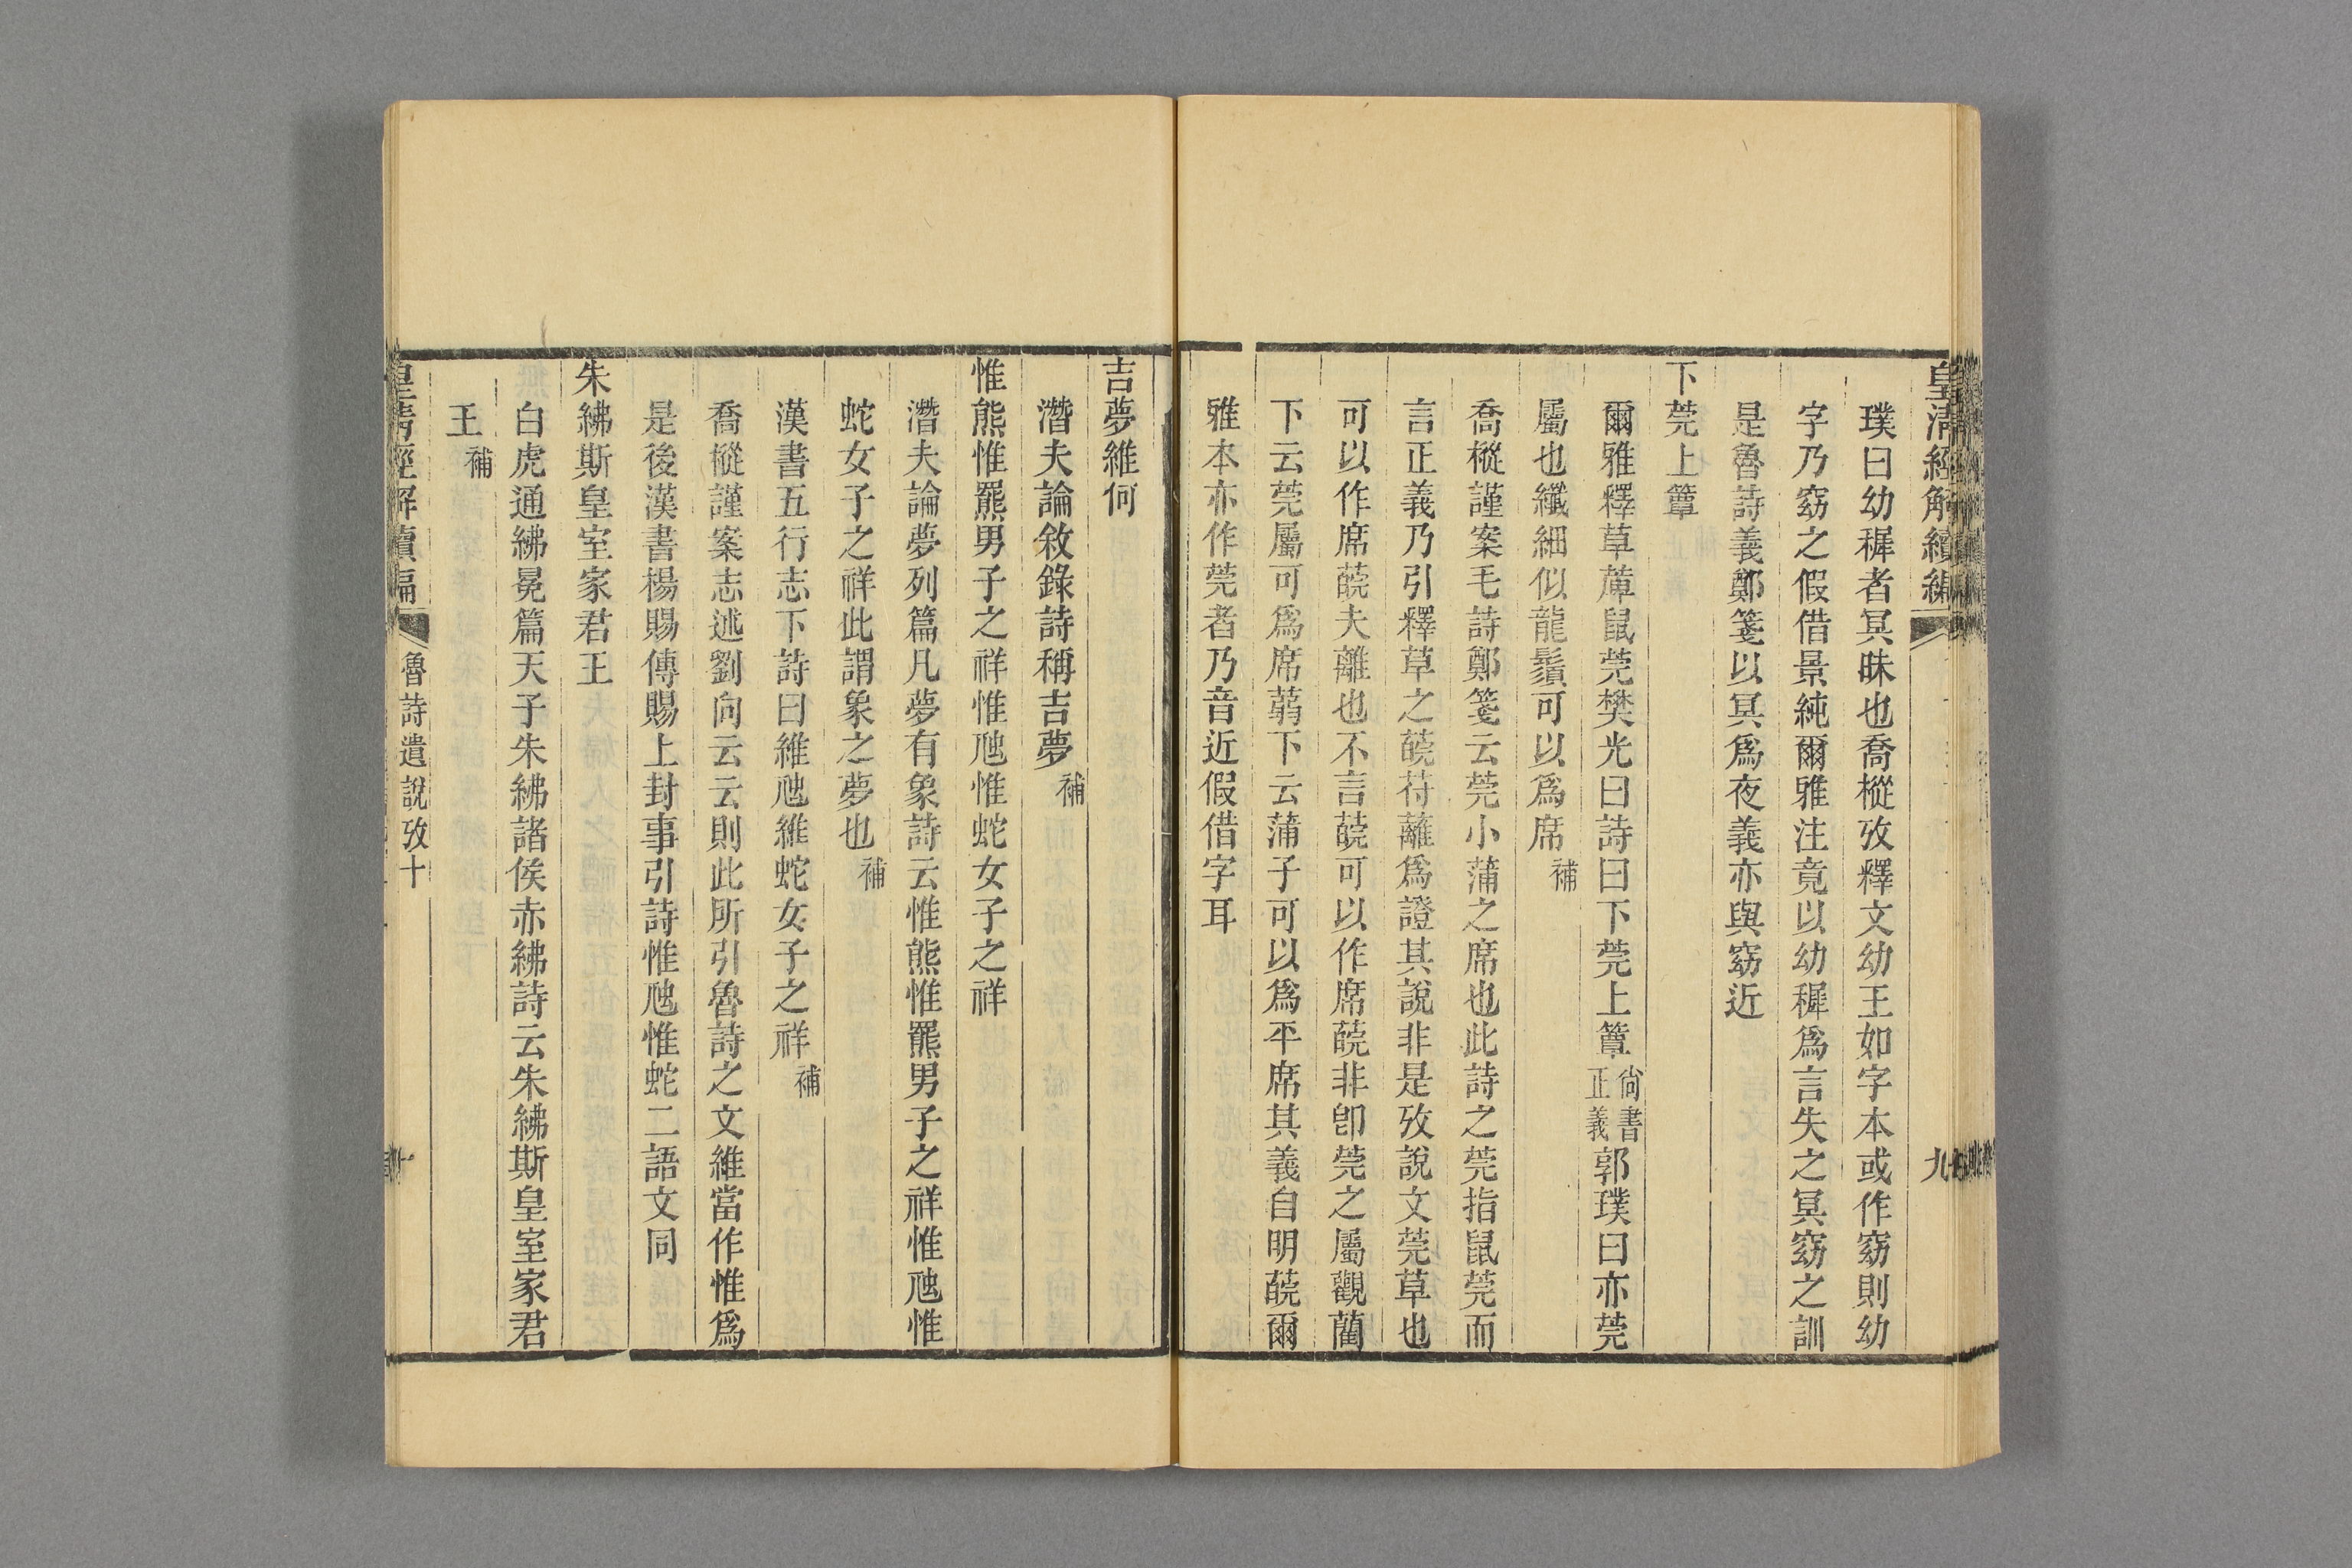 皇清經解續編 九
璞曰幼穉者冥昧也喬樅攷釋文幼王如字本或作窈則幼
字乃窈之假借景純爾雅注竟以幼穉爲言失之冥窈之訓
是魯詩義鄭箋以冥爲夜義亦與窈近
下莞上簟
爾雅釋草薡鼠莞樊光曰詩曰下莞上簟尙書正義郭璞曰亦莞
屬也纖細似龍鬚可以爲席補
喬樅謹案毛詩鄭箋云莞小蒲之席也此詩之莞指鼠莞而
言正義乃引釋草之䓣苻蘺爲證其說非是攷說文莞草也
可以作席䓣夫離也不言䓣可以作席䓣非卽莞之屬觀藺
下云莞屬可爲席蒻下云蒲子可以爲平席其義自明䓣爾
雅本亦作莞者乃音近假借字耳
吉夢維何
潛夫論敘錄詩稱吉夢補
惟熊惟羆男子之祥惟虺惟蛇女子之祥
潛夫論夢列篇凡夢有象詩云惟熊惟羆男子之祥惟虺惟
蛇女子之祥此謂象之夢也補
漢書五行志下詩曰維虺維蛇女子之祥補
喬樅謹案志述劉向云云則此所引魯詩之文維當作惟爲
是後漢書楊賜傳賜上封事引詩惟虺惟蛇二語文同
朱紼斯皇室家君王
白虎通紼冕篇天子朱紼諸侯赤紼詩云朱紼斯皇室家君
王補
皇清經解續編 魯詩遺說攷十